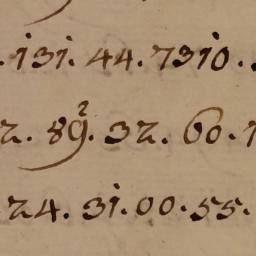 .131.44.7310.
2.89².32.60.1
24.31.00.55.